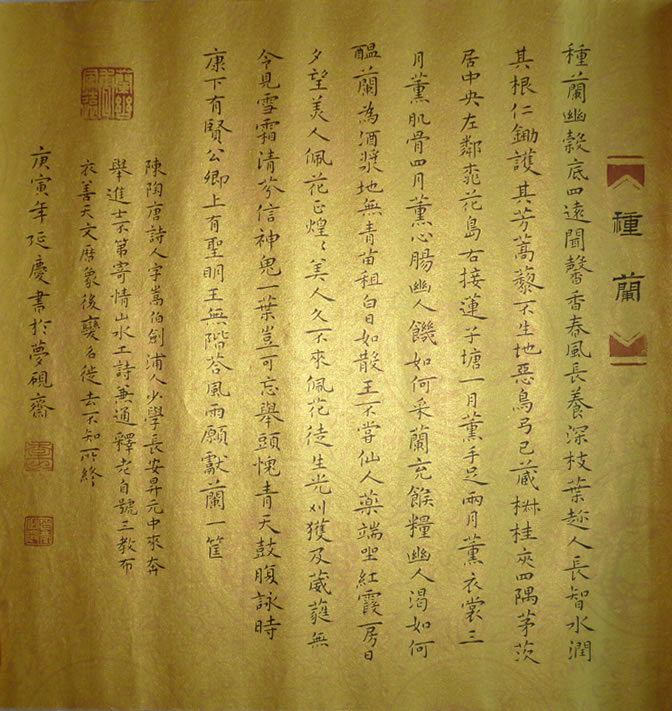 種蘭
種蘭幽谷底四遠聞馨香春風長養深枝葉趁人長智水潤
其根仁鋤護其芳蒿藜不生地惡鳥弓已藏椒桂夾四隅茅茨
居中央左鄰桃花島右接蓮子塘一月薰手足兩月薰衣裳三
月薰肌骨四月薰心腸幽人饑如何采蘭充餱糧幽人渴如何
醞蘭為酒漿地無青苗租白日如散王不嘗仙人藥端坐紅霞房日
夕望美人佩花正煌煌美人久不來佩花徒生光刈獲及葳蕤無
令見雪霜清芬信神鬼一葉豈可忘舉頭愧青天鼓腹詠時
康下有賢公卿上有聖明王無階答風雨願獻蘭一筐
陳陶唐詩人字嵩伯劍浦人少學長安昇元中來奔
舉進士不第寄情山水工詩兼通釋老自號三教布
衣善天文曆象後變名徙去不知所終
庚寅年延慶書於夢硯齋